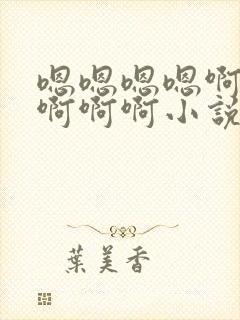 嗯嗯嗯嗯啊
啊啊啊小説
葉美香